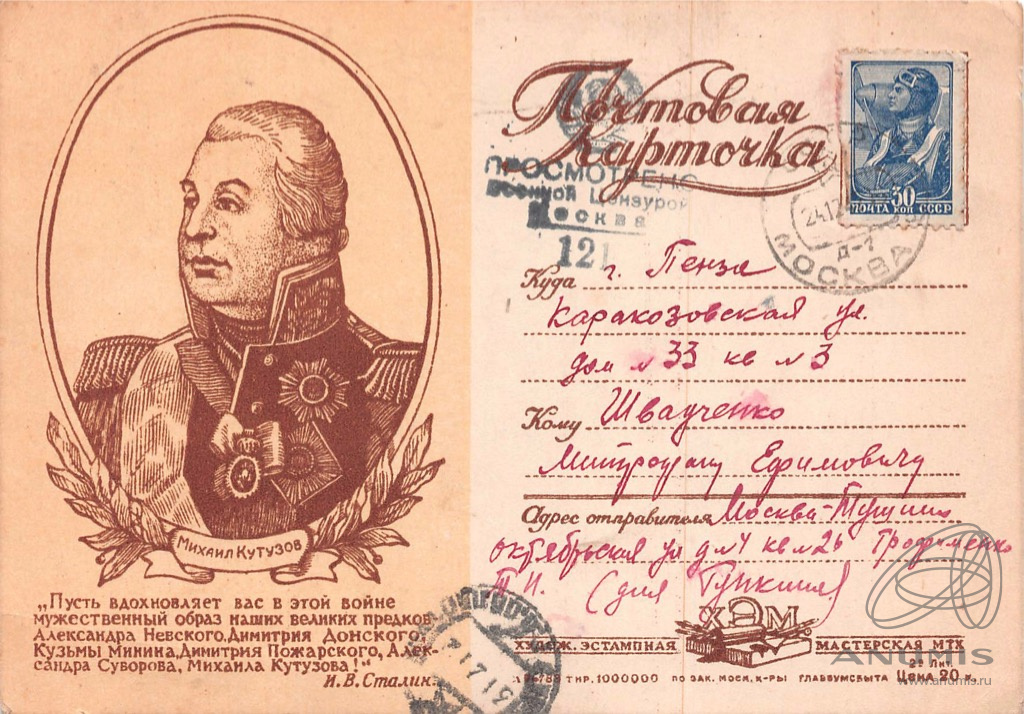 Михаил Кутузов
„Пусть вдохновляет вас в этой войне
мужественный образ наших великих предков
Александра Невского, Димитрия Донского,
Кузьмы Минина, Димитрия Пожарского, Алек-
сандра Суворова, Михаила Кутузова!"
И. В. Сталин.
Почтовая
Карточка
30
ПОЧТА КОП СССР
ПРОСМОТРЕНО
Военной Цензурой
Москва
121
24.12
МОСКВА
Д-2
Куда г. Пенза
Каракозовская ул.
дом № 33 кв № 3
Кому Швадченко
Митрофану Ефимовичу
Адрес отправителя Москва-Тушино
Октябрьская ул д № 4 кв № 26 Трофименко
Т. И. (для
ХЭМ
ХУДОЖ. ЭСТАМПНАЯ МАСТЕРСКАЯ МТХ
ТИР. 1000000 ПО ЗАК. МОСК. К-РЫ ГЛАВБУМСБЫТА Цена 20 к.
ANUMIS
www.anumis.ru